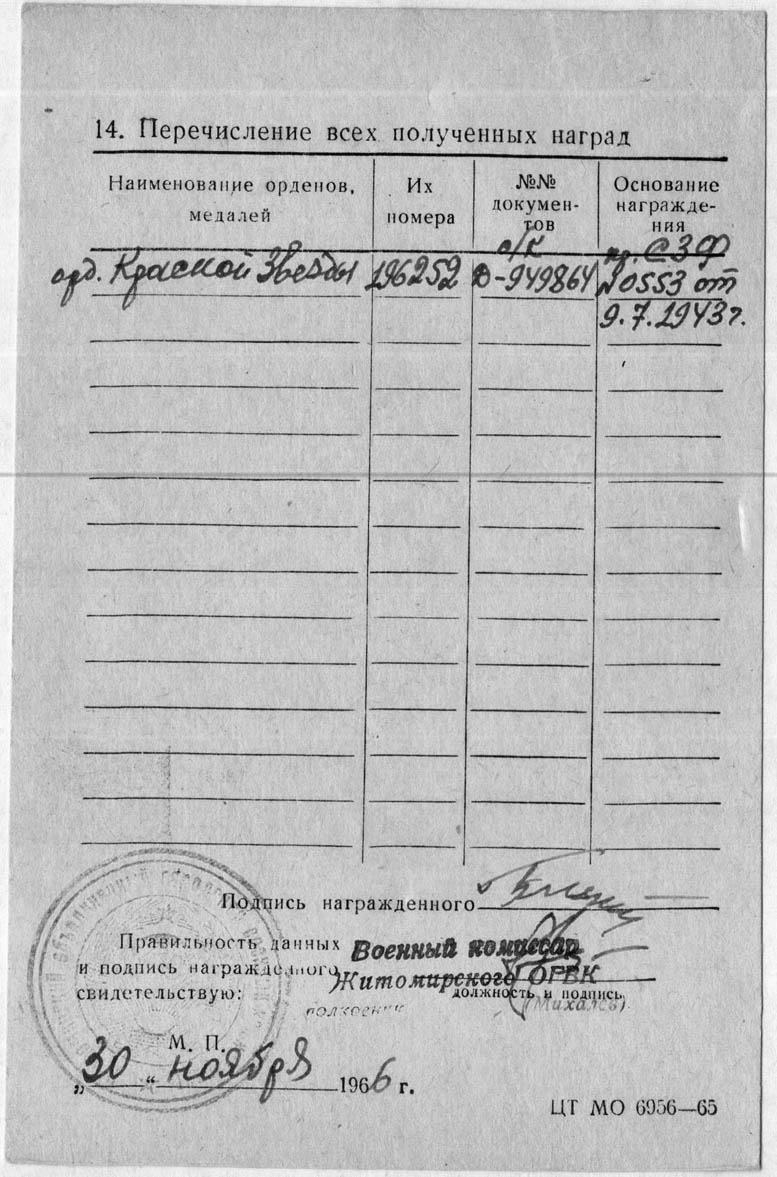 14. Перечисление всех полученных наград
Наименование орденов, медалей
Их номера
№№ докумен-
тов
Основание
награжде-
ния
о/к
пр. СЗФ
орд. Красной Звезды 196252 D-949864 №0553 от
9.7.1943г.
Подпись награжденного
Правильность данных
и подпись награжденного
свидетельствую:
Военный комиссар
Житомирского ОГВК
должность и подпись
полковник (Михалев)
М. П.
„30“ ноября 1966 г.
ЦТ МО 6956—65